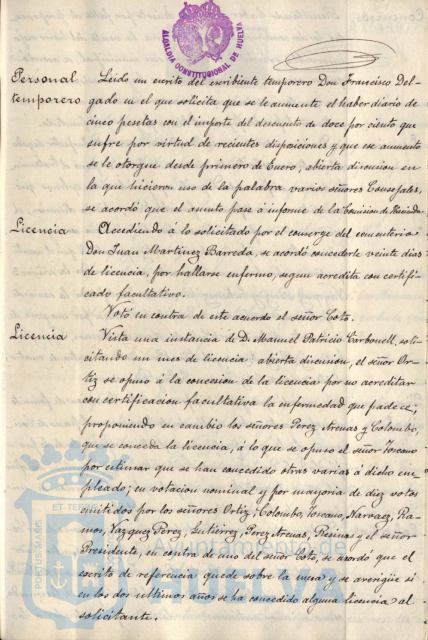 ALCALDIA CONSTITUCIONAL DE HUELVA
Personal
temporero
Leido un escrito del escribiente temporero Don Francisco Del-
gado en el que solicita que se le aumente el haber diario de
cinco pesetas con el importe del descuento de doce por ciento que
sufre por virtud de recientes disposiciones y que ese aumento
se le otorgue desde primero de Enero, abierta discusion en
la que hicieron uso de la palabra varios señores Concejales,
se acordó que el asunto pase á informe de la Comision de Hacienda.
Licencia
Accediendo á lo solicitado por el conserge del cementerio
Don Juan Martinez Barreda, se acordó concederle veinte dias
de licencia, por hallarse enfermo, segun acredita con certifi-
cado facultativo.
Votó en contra de este acuerdo el señor Coto.
Licencia
Vista una instancia de D. Manuel Patricio Carbonell, soli-
citando un mes de licencia: abierta discusion, el señor Or-
tiz se opuso á la concesion de la licencia por no acreditar
con certificacion facultativa la enfermedad que padece;
proponiendo en cambio los señores Perez Arenas y Colombo,
que se conceda la licencia, á lo que se opuso el señor Toscano
por estimar que se han concedido otras varias á dicho em-
pleado; en votacion nominal y por mayoria de diez votos
emitidos por los señores Ortiz, Colombo, Toscano, Narvaez, Ra-
mos, Vazquez Perez, Gutiérrez, Perez Arenas, Resinas y el señor
Presidente, en contra de uno del señor Coto, se acordó que el
escrito de referencia quede sobre la mesa y se averigüe si
en los dos ultimos años se ha concedido alguna licencia al
solicitante.
PORTUS MARIS ET TERRAE